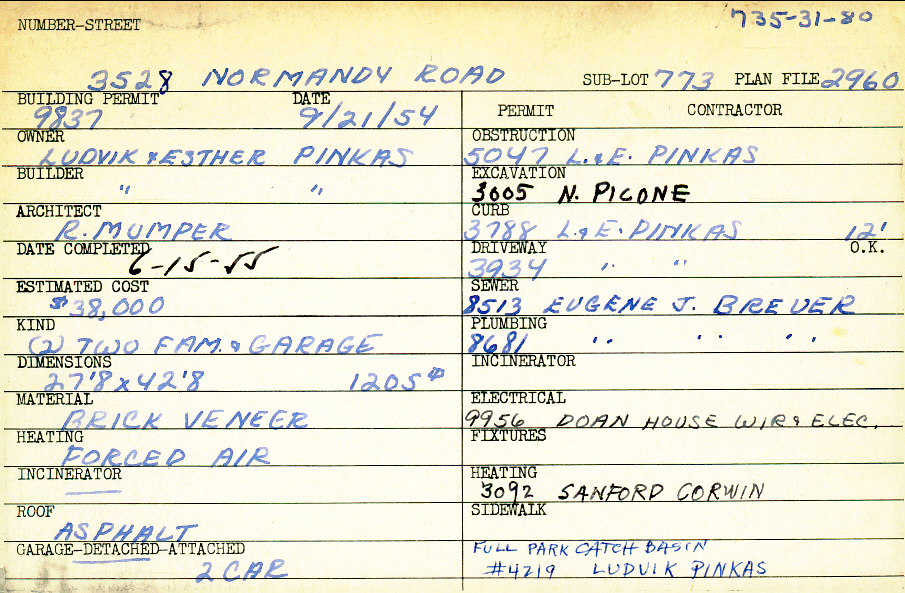 735-31-80
NUMBER-STREET
3528 NORMANDY ROAD SUB-LOT 773 PLAN FILE 2960
BUILDING PERMIT DATE
9837 9/21/54
OWNER
LUDVIK & ESTHER PINKAS
BUILDER
" "
ARCHITECT
R. MUMPER
DATE COMPLETED
6-15-55
ESTIMATED COST
$38,000
KIND
(2) TWO FAM. & GARAGE
DIMENSIONS
27'8 x 42'8 1205#
MATERIAL
BRICK VENEER
HEATING
FORCED AIR
INCINERATOR
ROOF
ASPHALT
GARAGE-DETACHED-ATTACHED
2 CAR
PERMIT CONTRACTOR
OBSTRUCTION
5047 L. & E. PINKAS
EXCAVATION
3605 N. PICONE
CURB
3788 L. & E. PINKAS 12'
DRIVEWAY O.K.
3934 " "
SEWER
8513 EUGENE J. BREUER
PLUMBING
8681 " " " "
INCINERATOR
ELECTRICAL
9956 DOAN HOUSE WIR & ELEC.
FIXTURES
HEATING
3092 SANFORD CORWIN
SIDEWALK
FULL PARK CATCH BASIN
#4219 LUDVIK PINKAS